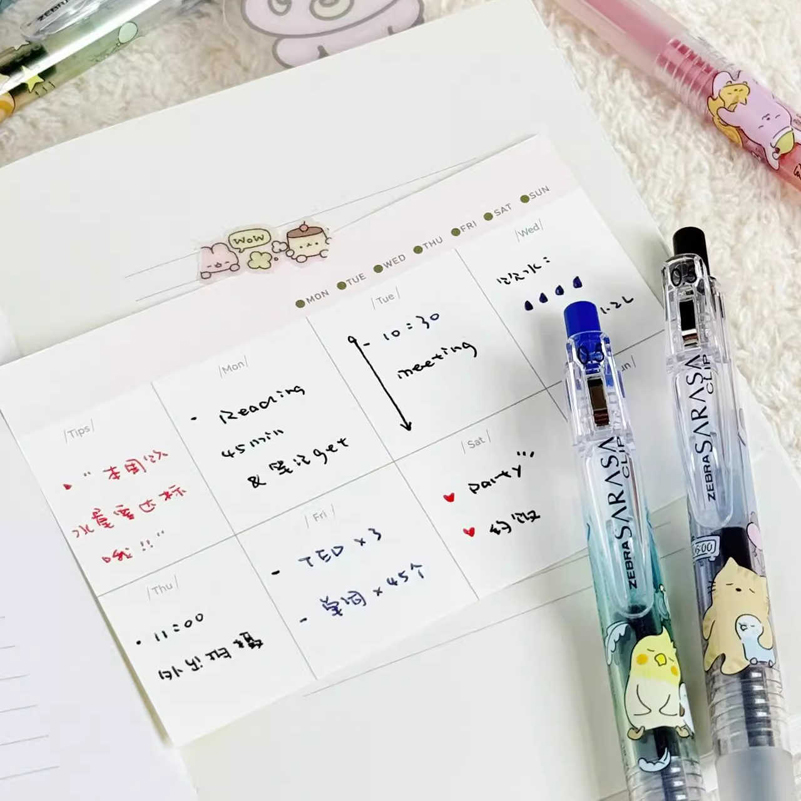 ZEBRA
WOW
MON TUE WED THU FRI SAT SUN
/Tips/
"本周饮
水量要达标
哦!!"
/Mon/
- Reading
45min
& 笔记get
/Tue/
- 10:30
meeting
/Wed/
饮水:
1.2L
/Thu/
• 11:00
外出拍摄
/Fri/
- TED ×3
- 单词 ×45个
/Sat/
party
约饭
0.5
ZEBRA SARASA CLIP
0.5
ZEBRA SARASA CLIP